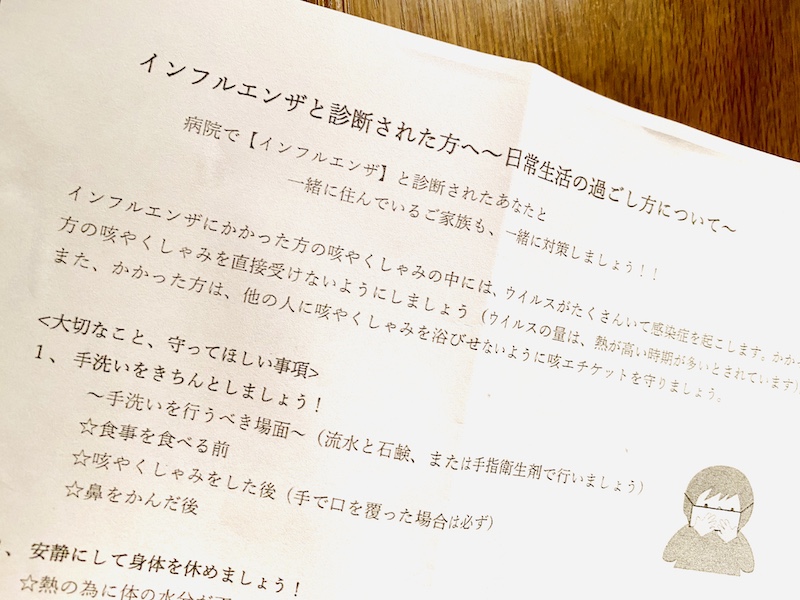 インフルエンザと診断された方へ～日常生活の過ごし方について～
病院で【インフルエンザ】と診断されたあなたと
一緒に住んでいるご家族も、一緒に対策しましょう！！
インフルエンザにかかった方の咳やくしゃみの中には、ウイルスがたくさんいて感染症を起こします。かかっ
方の咳やくしゃみを直接受けないようにしましょう（ウイルスの量は、熱が高い時期が多いとされています）
また、かかった方は、他の人に咳やくしゃみを浴びせないように咳エチケットを守りましょう。
<大切なこと、守ってほしい事項>
１、手洗いをきちんとしましょう！
～手洗いを行うべき場面～（流水と石鹸、または手指衛生剤で行いましょう）
☆食事を食べる前
☆咳やくしゃみをした後（手で口を覆った場合は必ず）
☆鼻をかんだ後
、安静にして身体を休めましょう！
☆熱の為に体の水分が